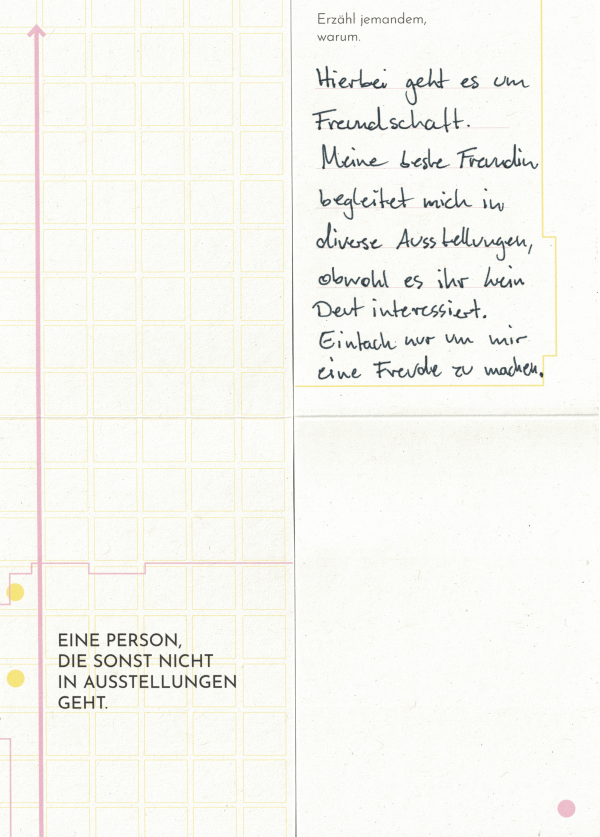 Erzähl jemandem,
warum.
Hierbei geht es um
Freundschaft.
Meine beste Freundin
begleitet mich in
diverse Ausstellungen,
obwohl es ihr kein
Deut interessiert.
Einfach nur um mir
eine Freude zu machen.
EINE PERSON,
DIE SONST NICHT
IN AUSSTELLUNGEN
GEHT.